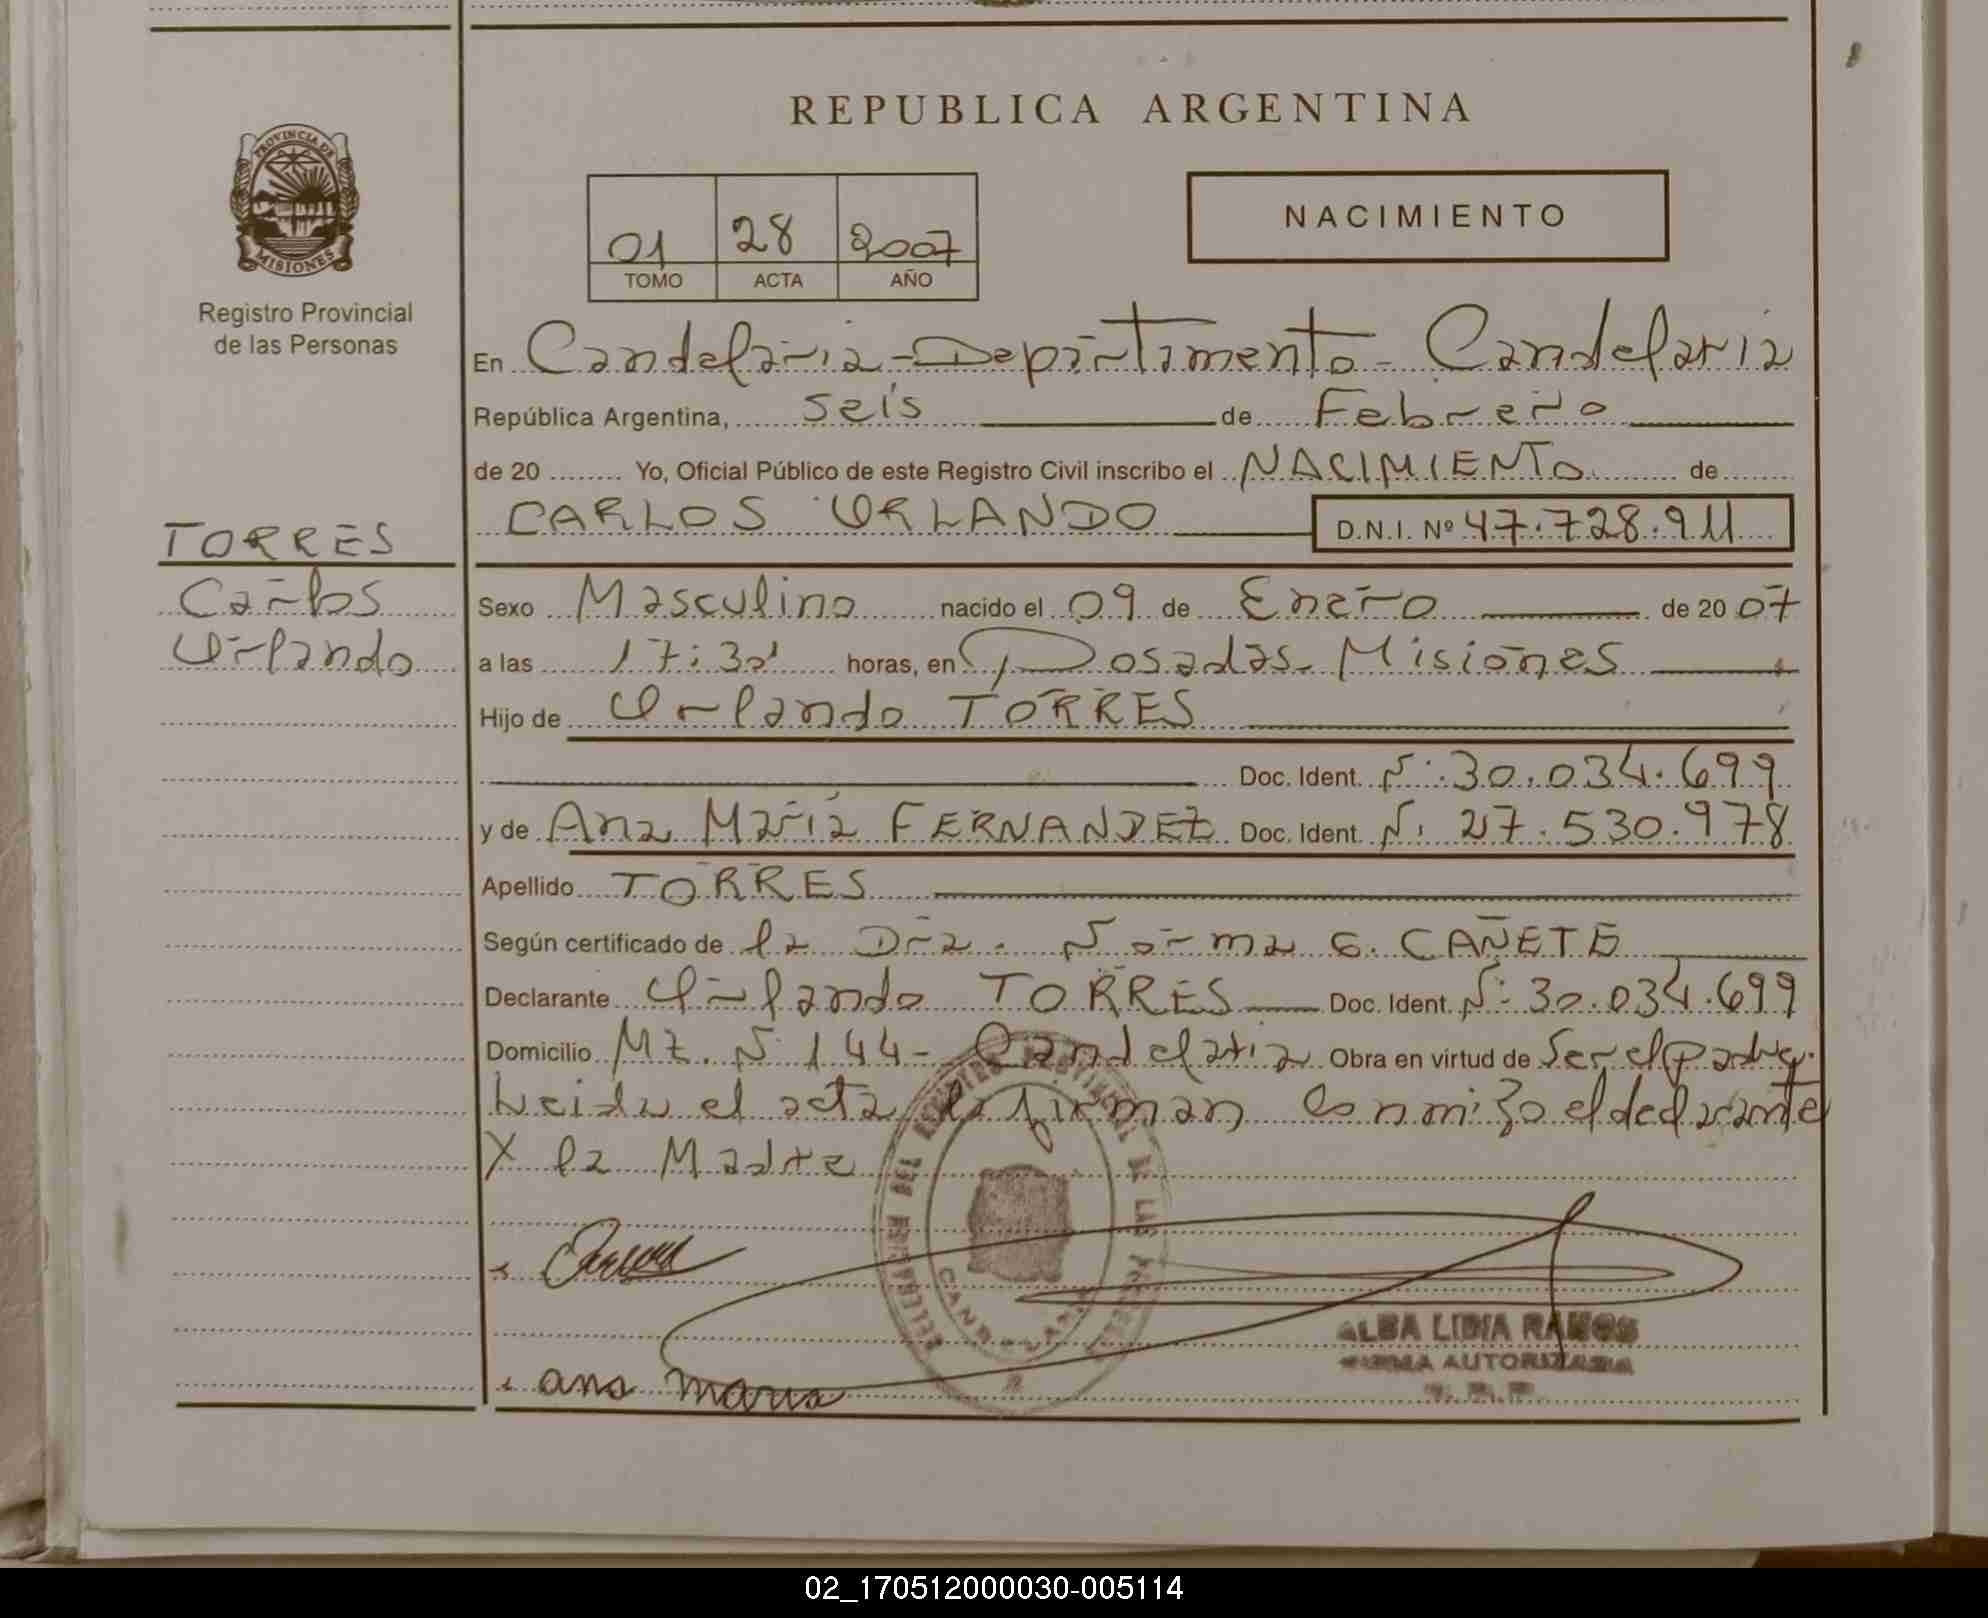 REPUBLICA ARGENTINA
PROVINCIA DE
MISIONES
Registro Provincial
de las Personas
01 28 2007
TOMO ACTA AÑO
NACIMIENTO
En Candelaria - Departamento - Candelaria
República Argentina, seis de Febrero
de 20 ........ Yo, Oficial Público de este Registro Civil inscribo el NACIMIENTO de
CARLOS ORLANDO D.N.I. Nº 47.728.911
TORRES
Carlos
Orlando
Sexo Masculino nacido el 09 de Enero de 20 07
a las 17:30 horas, en Posadas - Misiones
Hijo de Orlando TORRES
Doc. Ident. N: 30.034.699
y de Ana María FERNANDEZ Doc. Ident. N: 27.530.978
Apellido TORRES
Según certificado de la Dra. Norma G. CAÑETE
Declarante Orlando TORRES Doc. Ident. N: 30.034.699
Domicilio Mz. N 144 - Candelaria Obra en virtud de Ser el padre.
Leida el acta la firman conmigo el declarante
Y la Madre
ana maria
ALBA LIDIA RAMOS
FIRMA AUTORIZADA
02_170512000030-005114